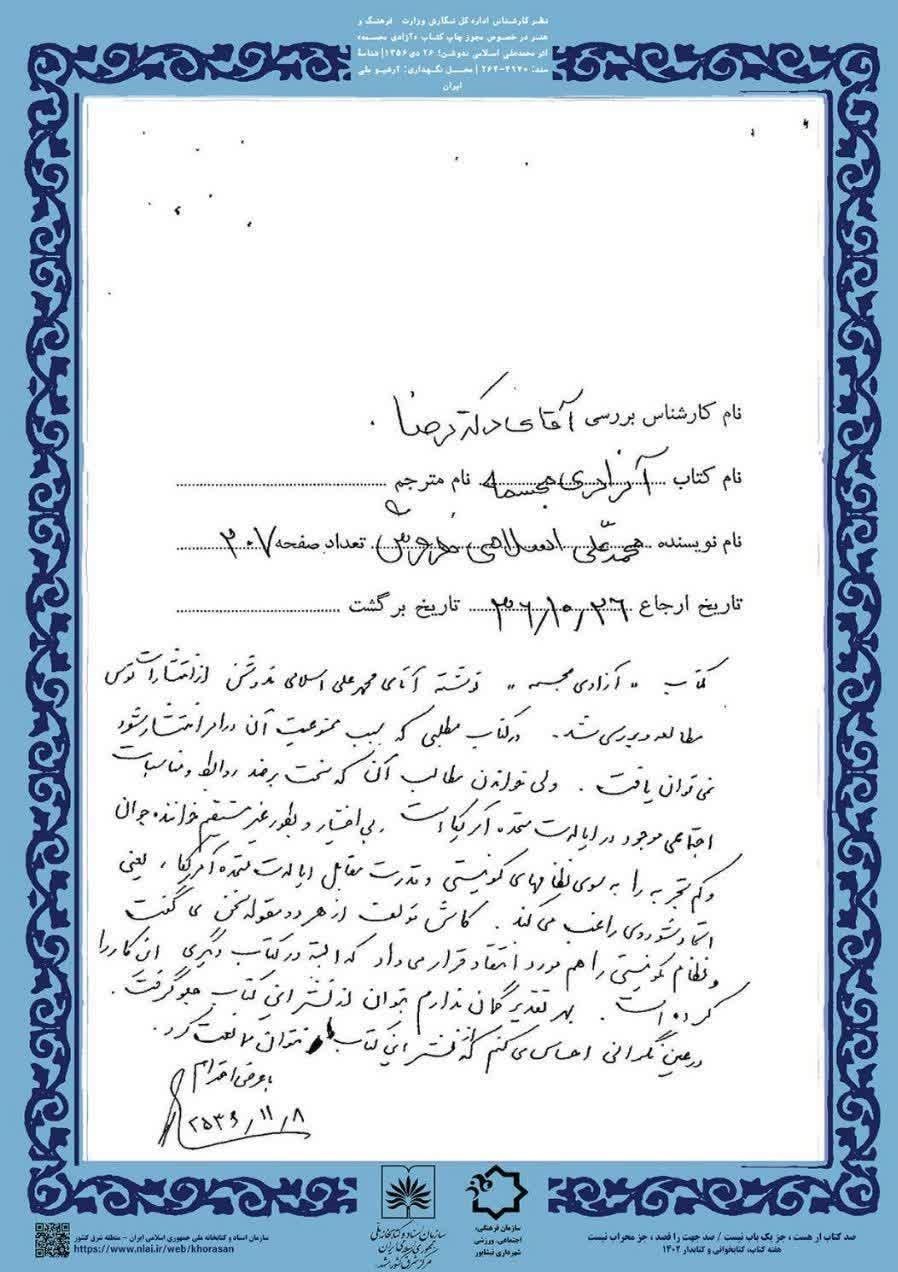 نظر کارشناس اداره کل نگارش وزارت فرهنگ و
هنر در خصوص مجوز چاپ کتاب «آزادی مجسمه»
اثر محمدعلی اسلامی ندوشن؛ ۲۶ دی ۱۳۵۶| شناسۀ
سند: ۴۹۷۰-۲۶۴ | محل نگهداری: آرشیو ملی
ایران
نام کارشناس بررسی آقای دکتر رضا
نام کتاب آزادی مجسمه نام مترجم
نام نویسنده محمدعلی اسلامی ندوشن تعداد صفحه ۳۰۷
تاریخ ارجاع ۳۶/۱۰/۲۶ تاریخ برگشت
کتاب " آزادی مجسمه " نوشته آقای محمد علی اسلامی ندوشن از انتشارات توس
مطالعه و بررسی شد. در کتاب مطلبی که سبب ممنوعیت آن در امر انتشار شود
نمی‌توان یافت. ولی خواندن مطالب آن که سخت بر ضد روابط و مناسبات
اجتماعی موجود در ایالات متحده آمریکا است، بی اختیار و بطور غیر مستقیم خواننده جوان
و کم تجربه را به سوی نظامهای کمونیستی و قدرت مقابل ایالات متحده آمریکا، یعنی
اتحاد شوروی راغب می‌کند. کاش مولف از هر دو مقوله سخن می گفت
و نظام کمونیستی را هم مورد انتقاد قرار می‌داد که البته در کتاب دیگری این کار را
کرده است. بهر تقدیر گمان ندارم بتوان از نشر این کتاب جلو گرفت.
در عین نگرانی احساس می کنم که از نشر این کتاب نتوان ممانعت کرد.
با عرض احترام
۲۵۳۶/۱۱/۸
سازمان اسناد و کتابخانه ملی جمهوری اسلامی ایران - منطقه شرق کشور
https://www.nlai.ir/web/khorasan
سازمان اسناد و کتابخانه ملی
جمهوری اسلامی ایران
مرکز شرق کشور مشهد
سازمان فرهنگی،
اجتماعی، ورزشی
شهرداری نیشابور
صد کتاب ار هست، جز یک باب نیست / صد جهت را قصد، جز محراب نیست
هفته کتاب، کتابخوانی و کتابدار ۱۴۰۲